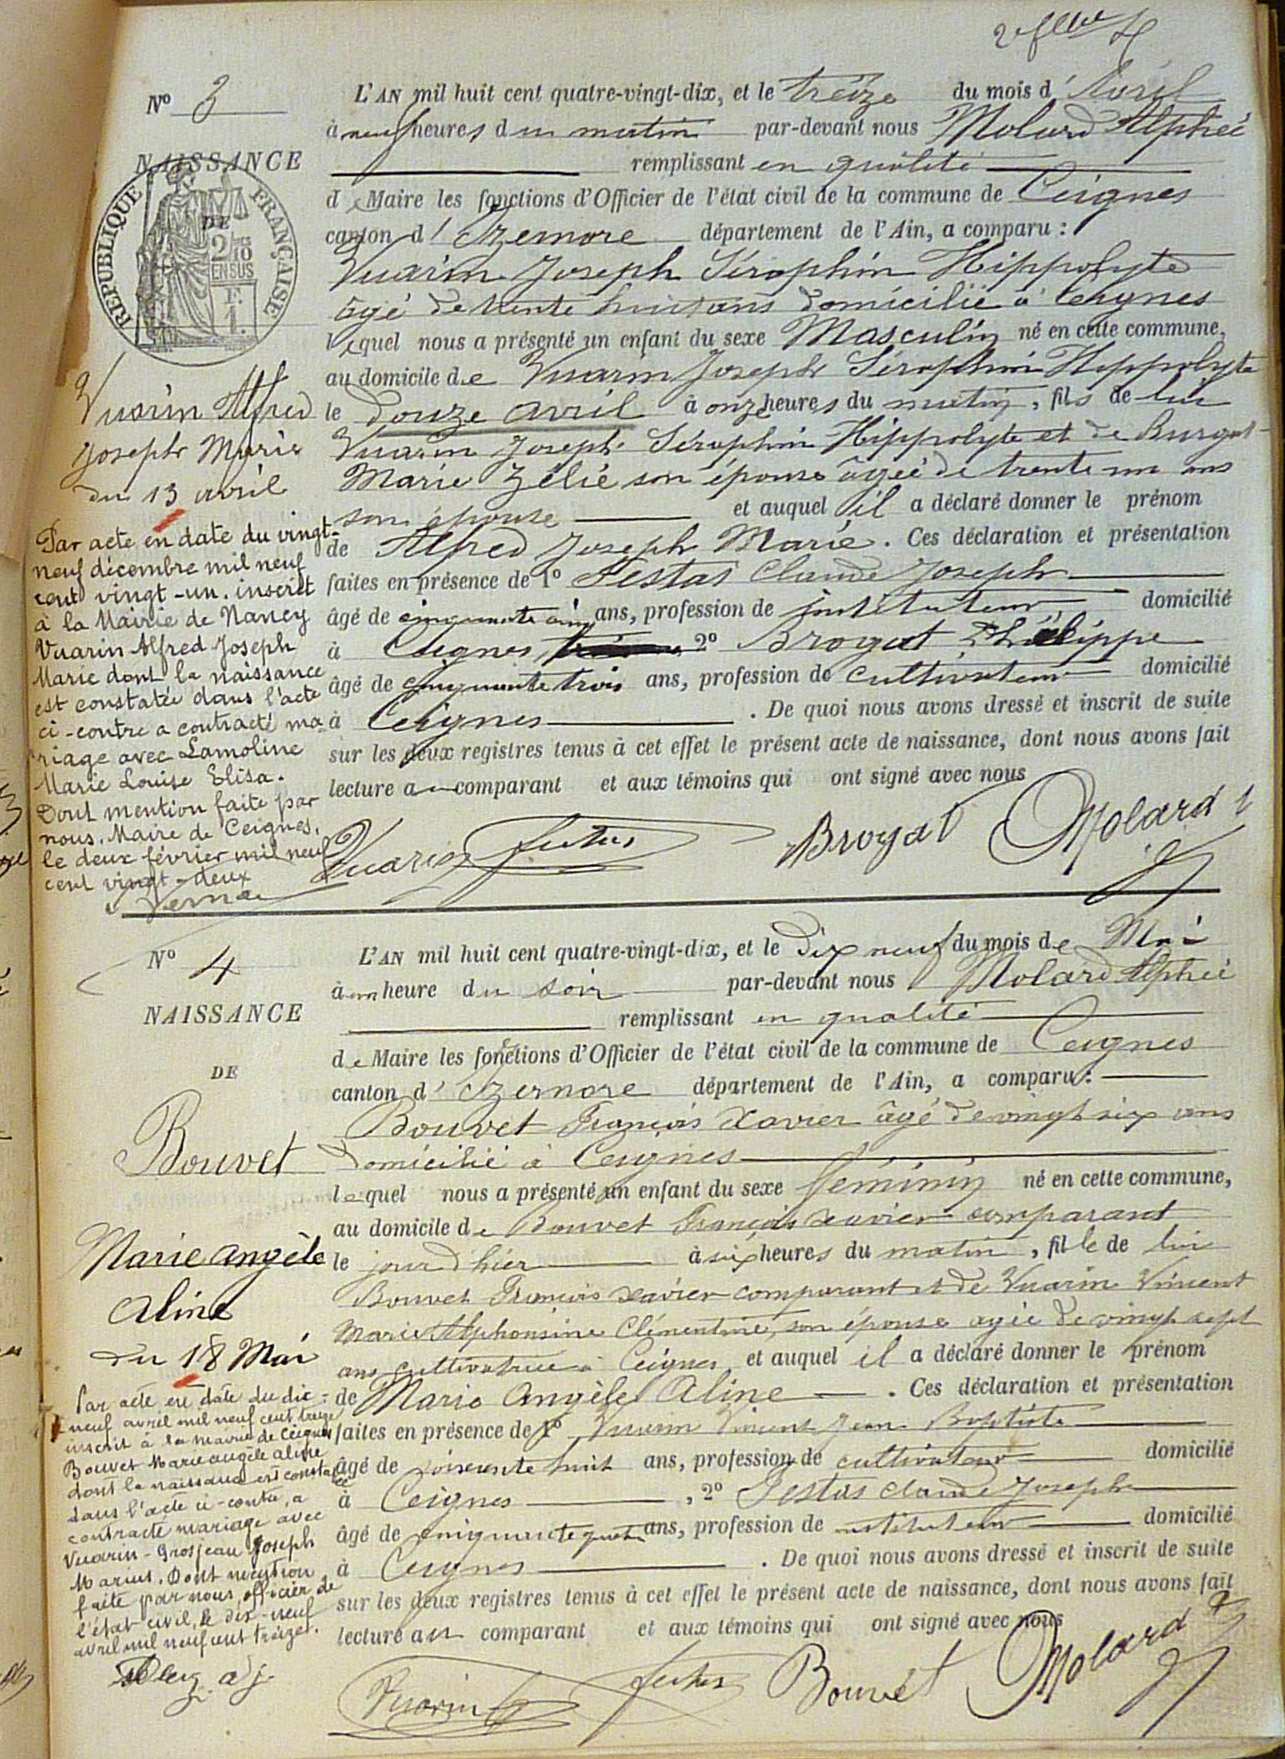 2e flle
N° 3
NAISSANCE
DE
RÉPUBLIQUE FRANÇAISE
2/10 EN SUS
Vuarin Alfred
Joseph Marie
du 13 avril
Par acte en date du vingt-
neuf décembre mil neuf
cent vingt-un. inscrit
à la Mairie de Nancy
Vuarin Alfred Joseph
Marie dont la naissance
est constatée dans l'acte
ci-contre a contracté ma-
riage avec Lamoline
Marie Louise Elisa.
Dont mention faite par
nous, Maire de Ceignes,
le deux février mil neuf
cent vingt-deux
L'AN mil huit cent quatre-vingt-dix, et le treize du mois d' Avril
à neuf heures du matin par-devant nous Molard Alphée
remplissant en qualité
de Maire les fonctions d'Officier de l'état civil de la commune de Ceignes
canton d' Izernore département de l'Ain, a comparu :
Vuarin Joseph Séraphin Hippolyte
âgé de trente huit ans domicilié à Ceignes
lequel nous a présenté un enfant du sexe Masculin né en cette commune,
au domicile de Vuarin Joseph Séraphin Hippolyte
le douze avril à onze heures du matin, fils de lui
Vuarin Joseph Séraphin Hippolyte et de Burgat
Marie Zélié son épouse âgée de trente un ans
son épouse et auquel il a déclaré donner le prénom
de Alfred Joseph Marie. Ces déclaration et présentation
faites en présence de 1° Festas Claude Joseph
âgé de cinquante cinq ans, profession de instituteur domicilié
à Ceignes, 2° Broyat Philippe
âgé de cinquante trois ans, profession de cultivateur domicilié
à Ceignes. De quoi nous avons dressé et inscrit de suite
sur les deux registres tenus à cet effet le présent acte de naissance, dont nous avons fait
lecture au comparant et aux témoins qui ont signé avec nous
Vuarin Broyat Molard
N° 4
NAISSANCE
DE
Bouvet
Marie Angèle
Aline
du 18 Mai
Par acte en date du dix-
neuf avril mil neuf cent treize
inscrit à la mairie de Ceignes
Bouvet Marie angèle aline
dont la naissance est constatée
dans l'acte ci-contre, a
contracté mariage avec
Vuarin-Grosjean Joseph
Marius. Dont mention
faite par nous, officier de
l'état-civil, le dix-neuf
avril mil neuf cent treize.
adj.
L'AN mil huit cent quatre-vingt-dix, et le Dix neuf du mois de Mai
à un heure du soir par-devant nous Molard Alphée
remplissant en qualité
de Maire les fonctions d'Officier de l'état civil de la commune de Ceignes
canton d' Izernore département de l'Ain, a comparu :
Bouvet François Xavier âgé de vingt six ans
domicilié à Ceignes
lequel nous a présenté un enfant du sexe féminin né en cette commune,
au domicile de Bouvet François Xavier comparant
le jour d'hier à six heures du matin, fille de lui
Bouvet François Xavier comparant et de Vuarin Vincent
Marie Alphonsine Clémentine, son épouse agée de vingt sept
ans cultivatrice à Ceignes et auquel il a déclaré donner le prénom
de Marie Angèle Aline. Ces déclaration et présentation
faites en présence de 1° Vuarin Vincent Jean Baptiste
âgé de soixante huit ans, profession de cultivateur domicilié
à Ceignes, 2° Festas Claude Joseph
âgé de cinquante ans, profession de instituteur domicilié
à Ceignes. De quoi nous avons dressé et inscrit de suite
sur les deux registres tenus à cet effet le présent acte de naissance, dont nous avons fait
lecture au comparant et aux témoins qui ont signé avec nous
Vuarin Bouvet Molard